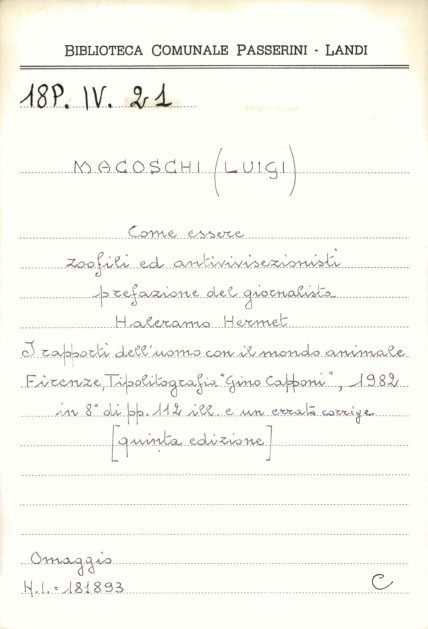 BIBLIOTECA COMUNALE PASSERINI - LANDI
18P. IV. 21
MACOSCHI (LUIGI)
Come essere
zoofili ed antivivisezionisti
prefazione del giornalista
Haleramo Hermet
I rapporti dell'uomo con il mondo animale
Firenze, Tipolitografia "Gino Capponi", 1982
in 8° di pp. 112 ill. e un errata corrige
[quinta edizione]
Omaggio
N.I. = 181893
C